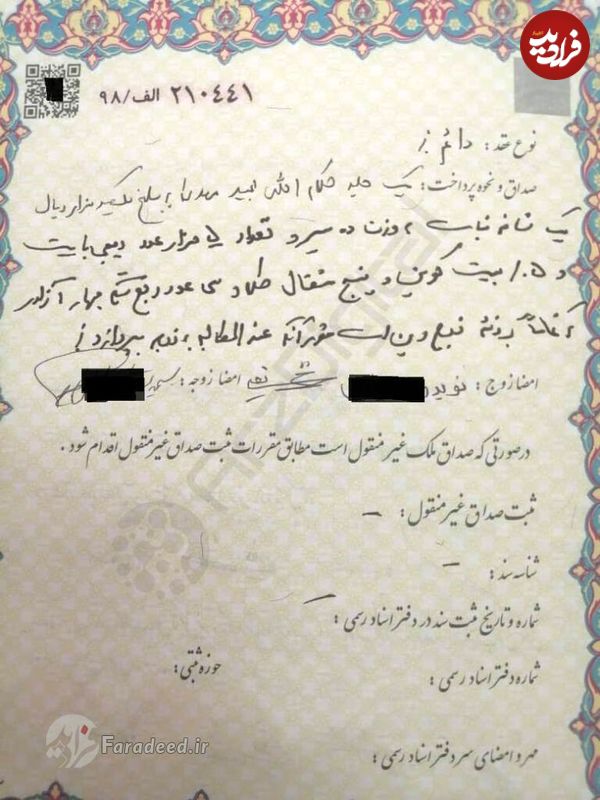 فرادید
۲۱۰۴۴۱ الف/۹۸
نوع عقد: دائم
صداق و نحوه پرداخت: یک جلد کلام الله مجید مهریه به مبلغ یکصد هزار ریال
یک شاخه نبات به وزن ده سیر و تعداد ۵ هزار عدد دیجی بایت
و ۱.۵ بیت کوین و پنج مثقال طلا و سی عدد ربع سکه بهار آزادی
که تماماً بر ذمه زوج دین است عندالمطالبه به زوجه بپردازد
امضا زوج: نوید امضا زوجه:
درصورتی که صداق ملک غیر منقول است مطابق مقررات ثبت صداق غیر منقول اقدام شود.
ثبت صداق غیر منقول: –
شناسه سند: –
شماره و تاریخ ثبت سند در دفتر اسناد رسمی: –
شماره دفتر اسناد رسمی: حوزه ثبتی:
مهر و امضای سردفتر اسناد رسمی:
Faradeed.ir
ArzDigital